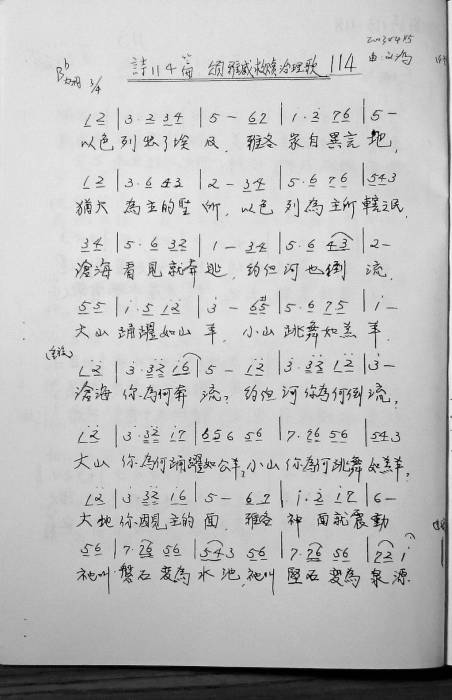 詩114篇 頌雅威救贖治理歌 114
3/4
1 2 | 3 · 2 3 4 | 5 - 6 7 | 1 · 2 7 6 | 5 -
以色列出了埃及, 雅各家自異言地,
1 2 | 3 · 6 4 3 | 2 - 3 4 | 5 · 6 7 6 | 5 4 3
猶大為主的聖所, 以色列為主所轄之民,
3 4 | 5 · 6 3 2 | 1 - 3 4 | 5 · 6 4 3 | 2 -
滄海看見就奔逃, 約但河也倒流,
5 5 | 1 · 5 1 2 | 3 - 6 #5 | 5 · 6 7 5 | 1 -
大山踊躍如山羊, 小山跳舞如羔羊.
1 2 | 3 · 3 2 1 6 | 5 - 1 2 | 3 · 3 2 1 2 | 3 -
滄海你為何奔流? 約但河你為何倒流?
1 2 | 3 · 3 2 1 7 | 6 5 6 5 6 | 7 · 7 6 5 6 | 5 4 3
大山你為何踊躍如公羊? 小山你為何跳舞如羔羊?
1 2 | 3 · 3 2 1 6 | 5 - 6 7 | 1 · 2 1 7 | 6 -
大地你因見主的面, 雅各神面就震動
5 6 | 7 · 7 6 5 6 | 5 4 3 5 6 | 7 · 7 6 5 6 | 7 2 1
祂叫磐石變為水池, 祂叫堅石變為泉源.